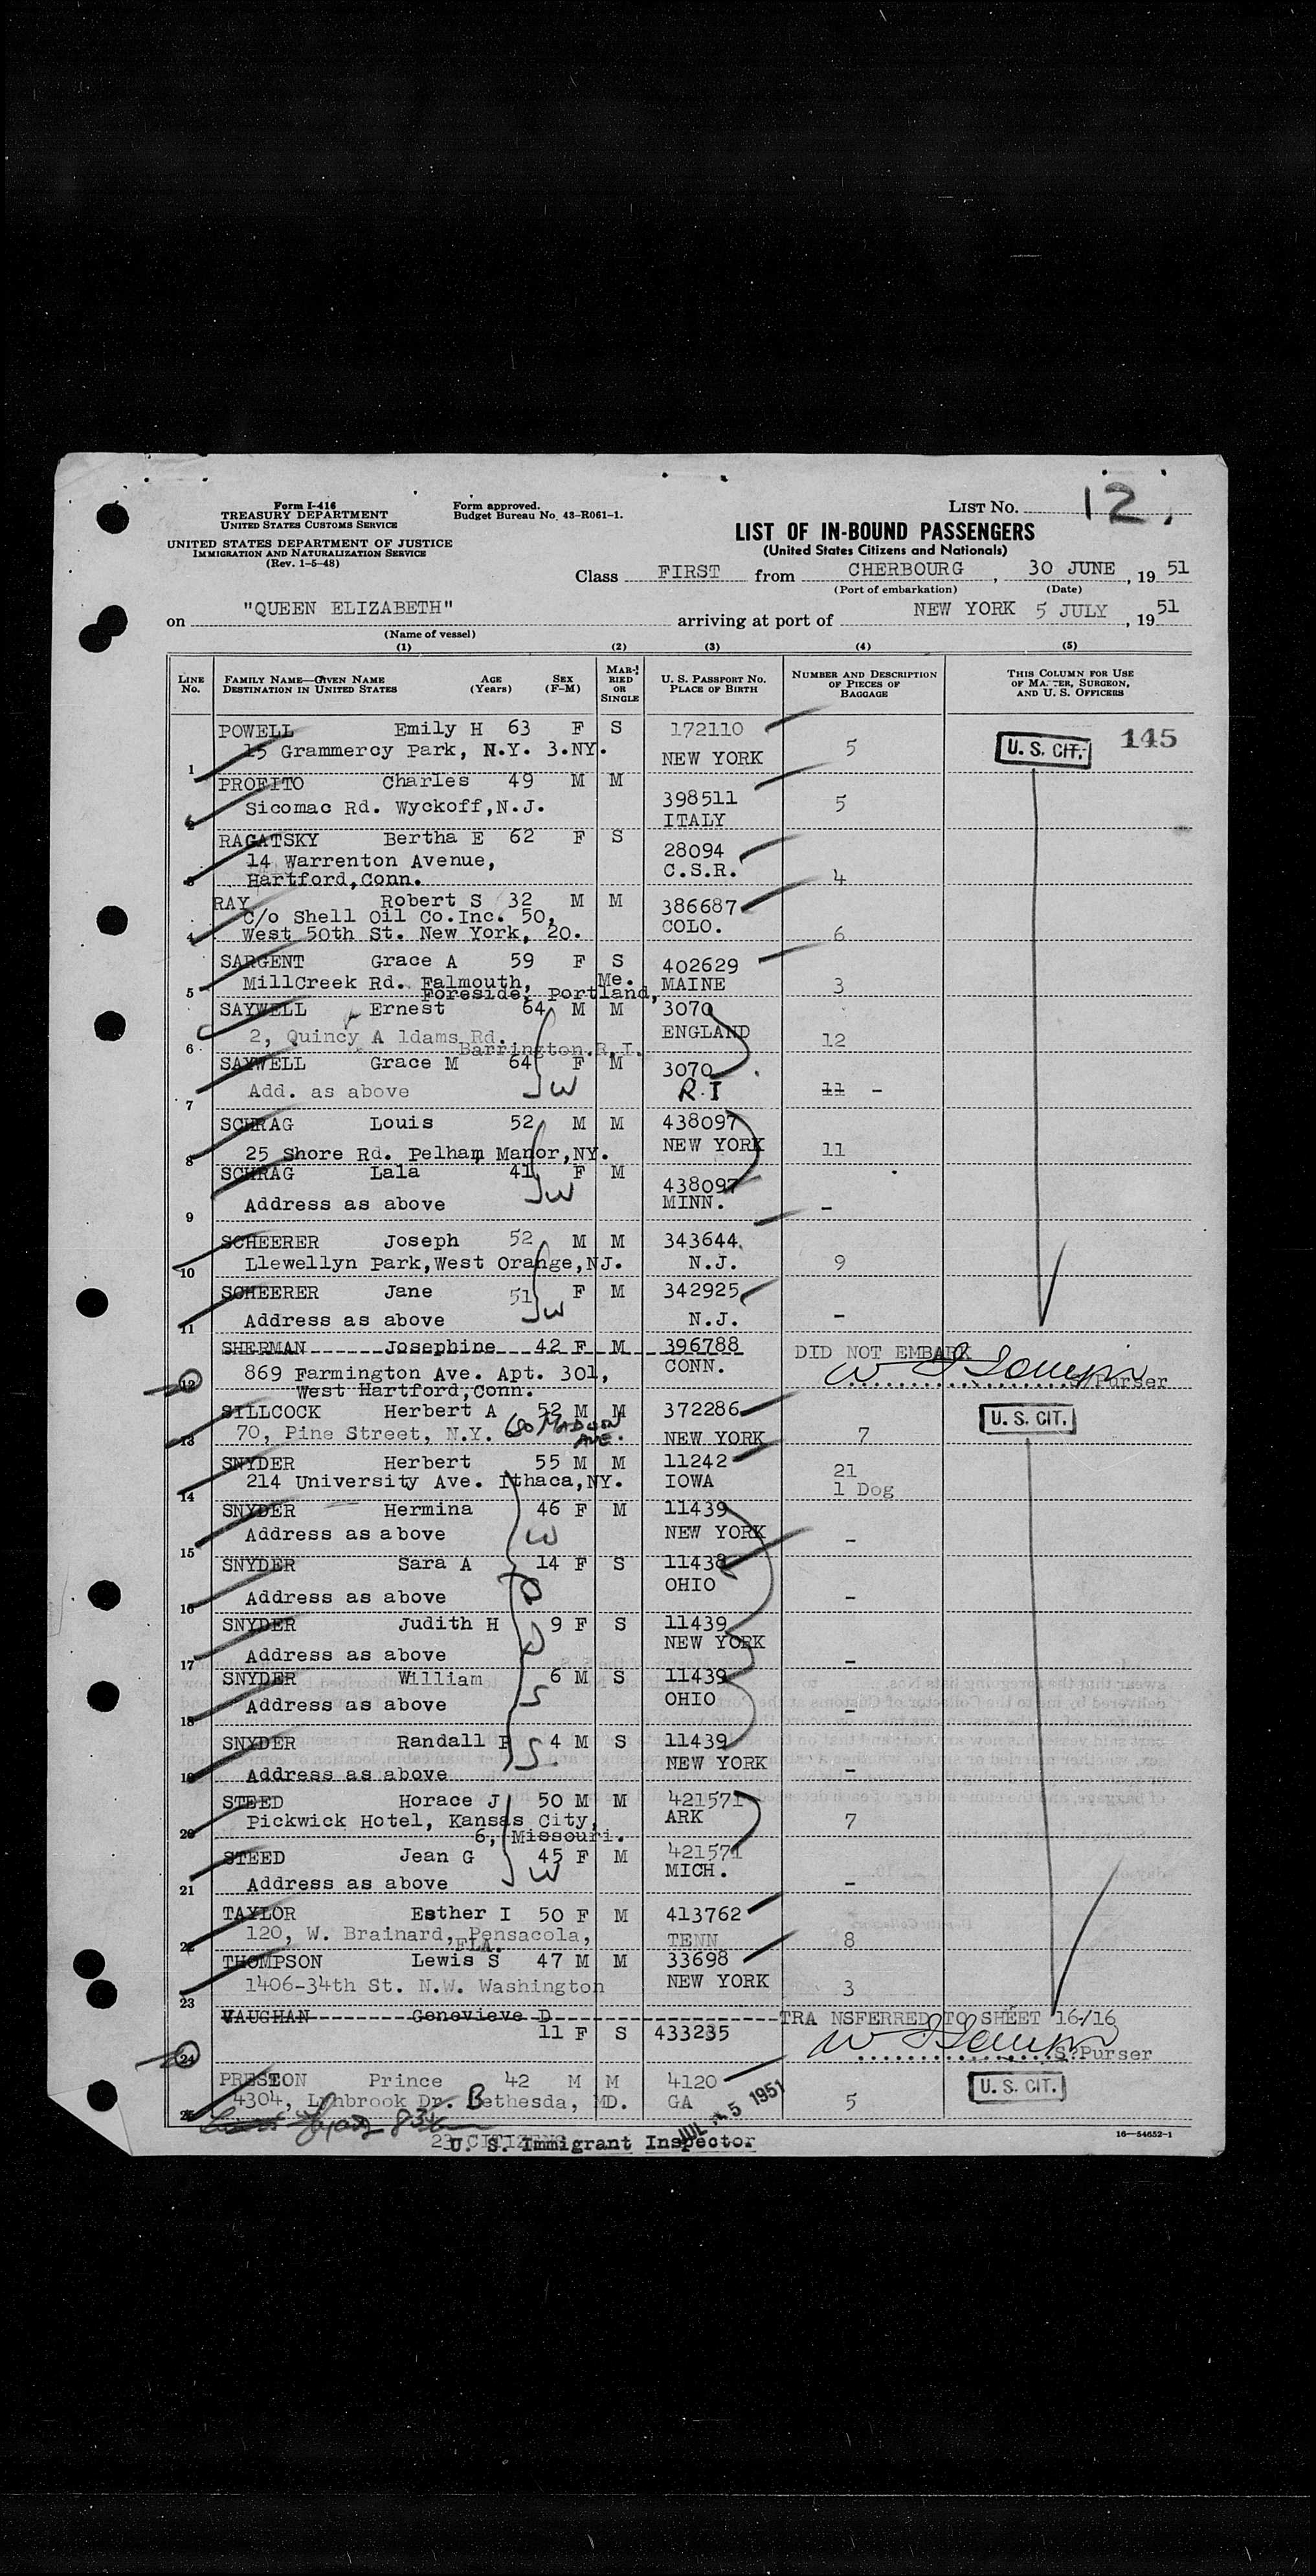 Form I-416
TREASURY DEPARTMENT
UNITED STATES CUSTOMS SERVICE
UNITED STATES DEPARTMENT OF JUSTICE
IMMIGRATION AND NATURALIZATION SERVICE
(Rev. 1-5-48)
Form approved.
Budget Bureau No. 43-R061-1.
LIST NO. 12.
LIST OF IN-BOUND PASSENGERS
(United States Citizens and Nationals)
Class FIRST from CHERBOURG, 30 JUNE, 19 51
(Port of embarkation) (Date)
on "QUEEN ELIZABETH" arriving at port of NEW YORK 5 JULY, 19 51
(Name of vessel)
(1) (2) (3) (4) (5)
LINE NO. FAMILY NAME—GIVEN NAME DESTINATION IN UNITED STATES AGE (Years) SEX (F-M) MARRIED OR SINGLE U. S. PASSPORT NO. PLACE OF BIRTH NUMBER AND DESCRIPTION OF PIECES OF BAGGAGE THIS COLUMN FOR USE OF MASTER, SURGEON, AND U. S. OFFICERS
POWELL Emily H 63 F S 172110 U. S. CIT. 145
1 15 Grammercy Park, N.Y. 3.NY. NEW YORK 5
PROFITO Charles 49 M M 398511
2 Sicomac Rd. Wyckoff,N.J. ITALY 5
RAGATSKY Bertha E 62 F S 28094
14 Warrenton Avenue, C.S.R.
3 Hartford,Conn. 4
RAY Robert S 32 M M 386687
C/o Shell Oil Co.Inc. 50, COLO.
4 West 50th St. New York, 20. 6
SARGENT Grace A 59 F S 402629
5 MillCreek Rd. Falmouth, Me. MAINE 3
Foreside, Portland,
SAYWELL Ernest 64 M M 3070
2, Quincy A ldams Rd. ENGLAND 12
6 Barrington.R.I.
SAYWELL Grace M 64 F M 3070
7 Add. as above W R.I 11 -
SCHRAG Louis 52 M M 438097
8 25 Shore Rd. Pelham Manor,NY. NEW YORK 11
SCHRAG Lala 41 F M 438097
9 Address as above W MINN. -
SCHEERER Joseph 52 M M 343644
10 Llewellyn Park,West Orange,NJ. N.J. 9
SCHEERER Jane 51 F M 342925
11 Address as above W N.J. -
SHERMAN Josephine 42 F M 396788 DID NOT EMBARK
12 869 Farmington Ave. Apt. 301, CONN. S/Purser
West Hartford,Conn.
SILLCOCK Herbert A 52 M M 372286 U. S. CIT.
13 70, Pine Street, N.Y. 680 MADISON AVE. NEW YORK 7
SNYDER Herbert 55 M M 11242 21
14 214 University Ave. Ithaca,NY. IOWA 1 Dog
SNYDER Hermina 46 F M 11439
15 Address as above W NEW YORK -
SNYDER Sara A 14 F S 11438
16 Address as above D OHIO -
SNYDER Judith H 9 F S 11439
17 Address as above D NEW YORK -
SNYDER William 6 M S 11439
18 Address as above S OHIO -
SNYDER Randall F 4 M S 11439
19 Address as above S NEW YORK -
STEED Horace J 50 M M 421571
20 Pickwick Hotel, Kansas City, ARK 7
6, Missouri.
STEED Jean G 45 F M 421571
21 Address as above W MICH. -
TAYLOR Esther I 50 F M 413762
22 120, W. Brainard, Pensacola, TENN 8
FLA.
THOMPSON Lewis S 47 M M 33698
23 1406-34th St. N.W. Washington NEW YORK 3
VAUGHAN Genevieve D TRA NSFERRED TO SHEET 16/16
11 F S 433235
24 S?Purser
PRESTON Prince 42 M M 4120 U. S. CIT.
25 4304, Lynbrook Dr. Bethesda, MD. GA 5
JUL 5 1951
23 CITIZENS
U. S. Immigrant Inspector
16—54652-1